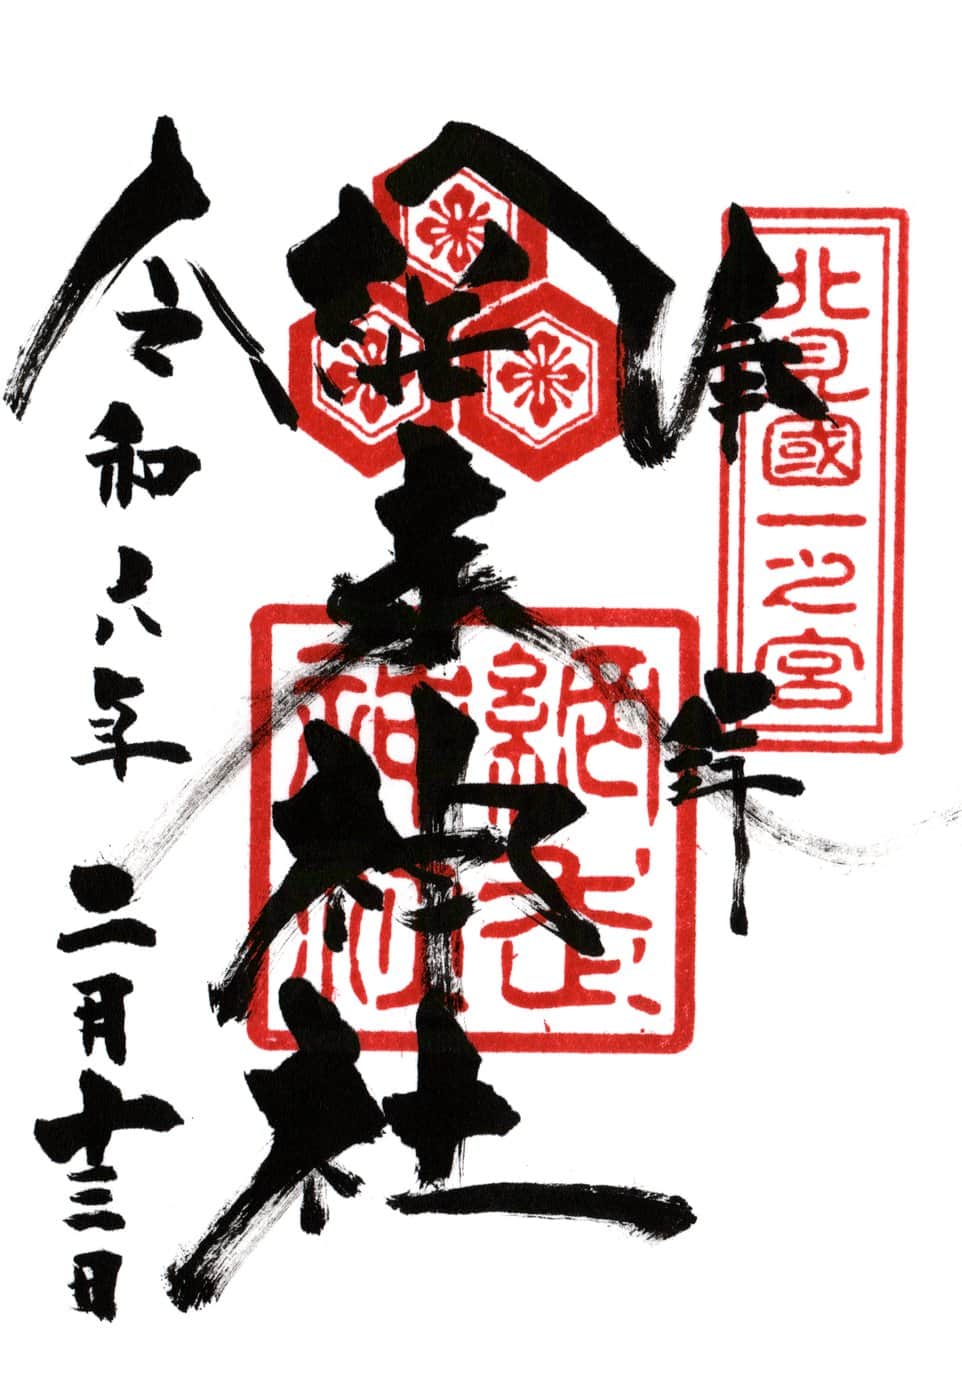 奉拝
北見國一之宮
網走神社
網走
神社
令和六年二月十三日